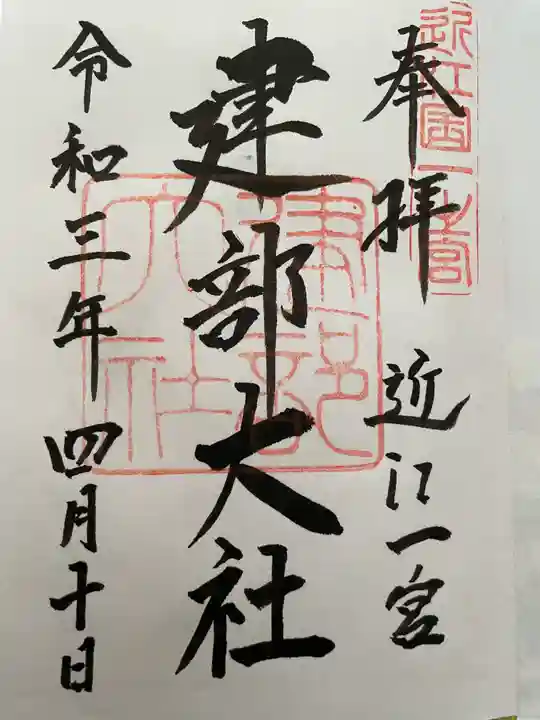 近江国一之宮
奉拝 近江一宮
建部大社
建部大社
令和三年四月十日